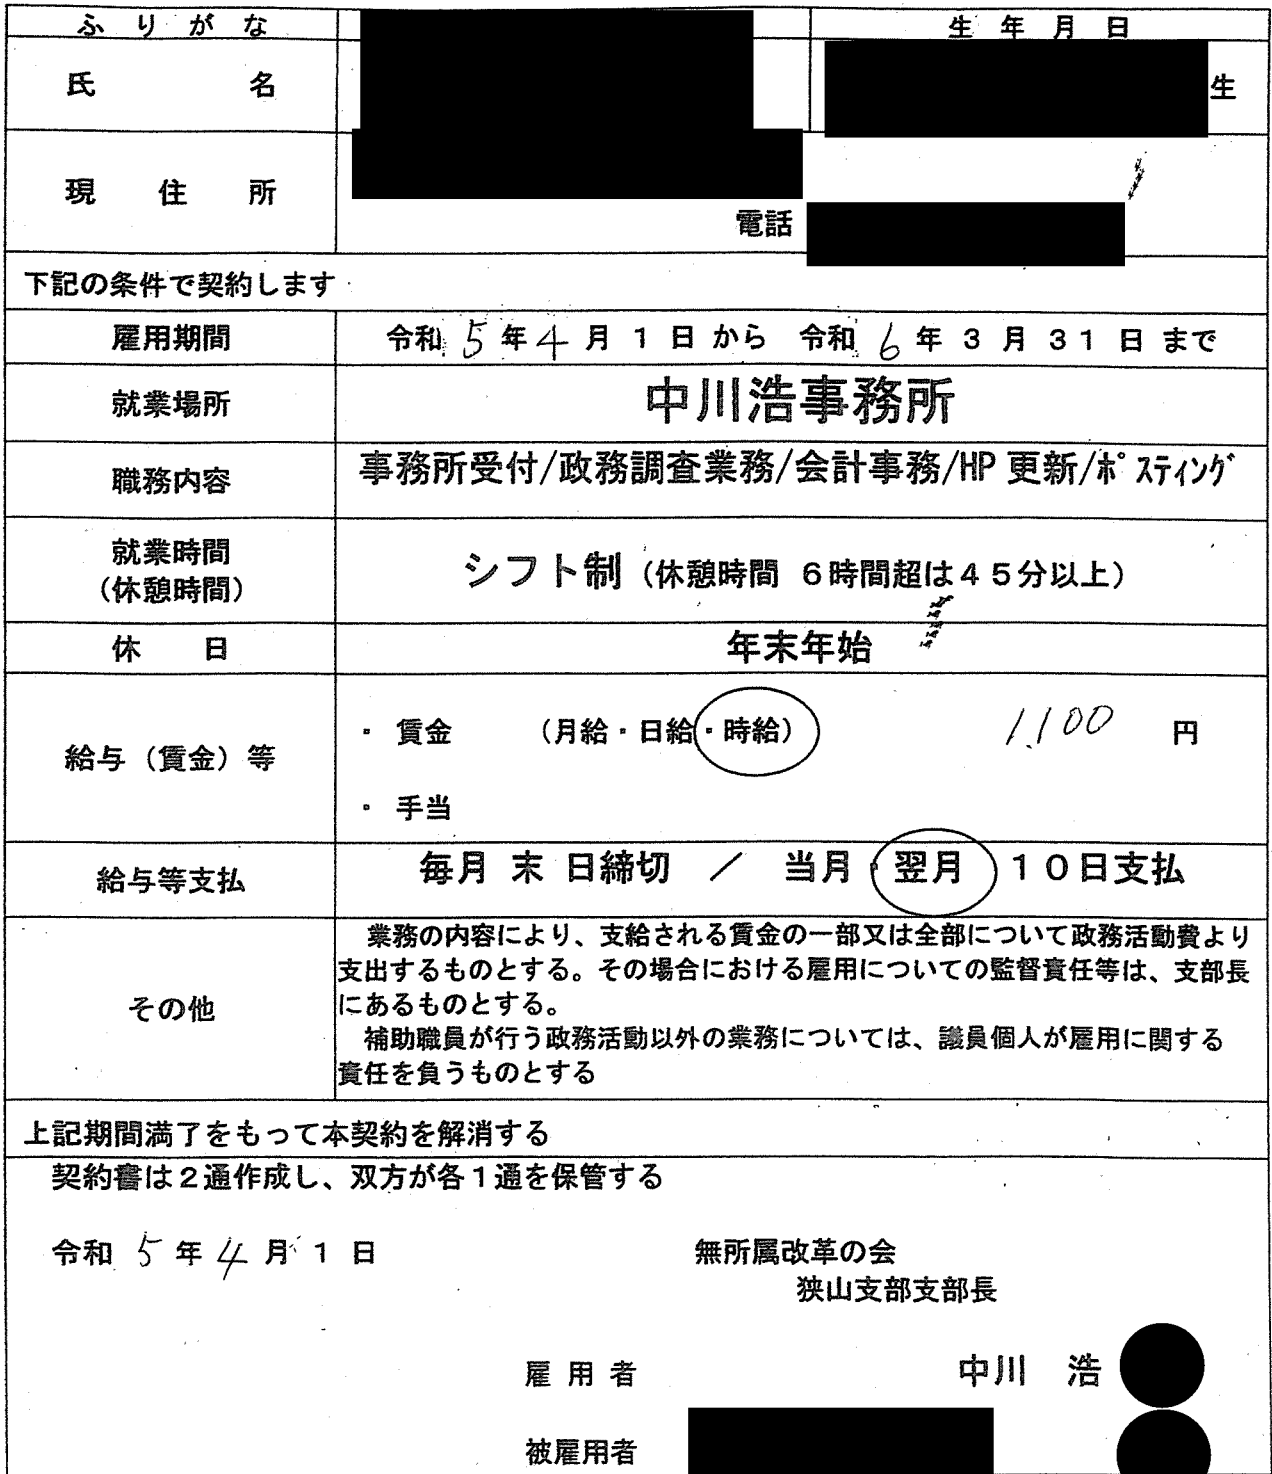 ふりがな
生年月日
氏名
生
現住所
電話
下記の条件で契約します
雇用期間 令和5年4月1日から 令和6年3月31日まで
就業場所 中川浩事務所
職務内容 事務所受付/政務調査業務/会計事務/HP更新/ポスティング
就業時間
(休憩時間)
シフト制(休憩時間 6時間超は45分以上)
休日 年末年始
給与(賃金)等
・賃金 (月給・日給・時給) 1,100円
・手当
給与等支払 毎月 末 日締切 / 当月・翌月 10日支払
その他
業務の内容により、支給される賃金の一部又は全部について政務活動費より
支出するものとする。その場合における雇用についての監督責任等は、支部長
にあるものとする。
補助職員が行う政務活動以外の業務については、議員個人が雇用に関する
責任を負うものとする
上記期間満了をもって本契約を解消する
契約書は2通作成し、双方が各1通を保管する
令和5年4月1日
無所属改革の会
狭山支部支部長
雇用者 中川 浩
被雇用者